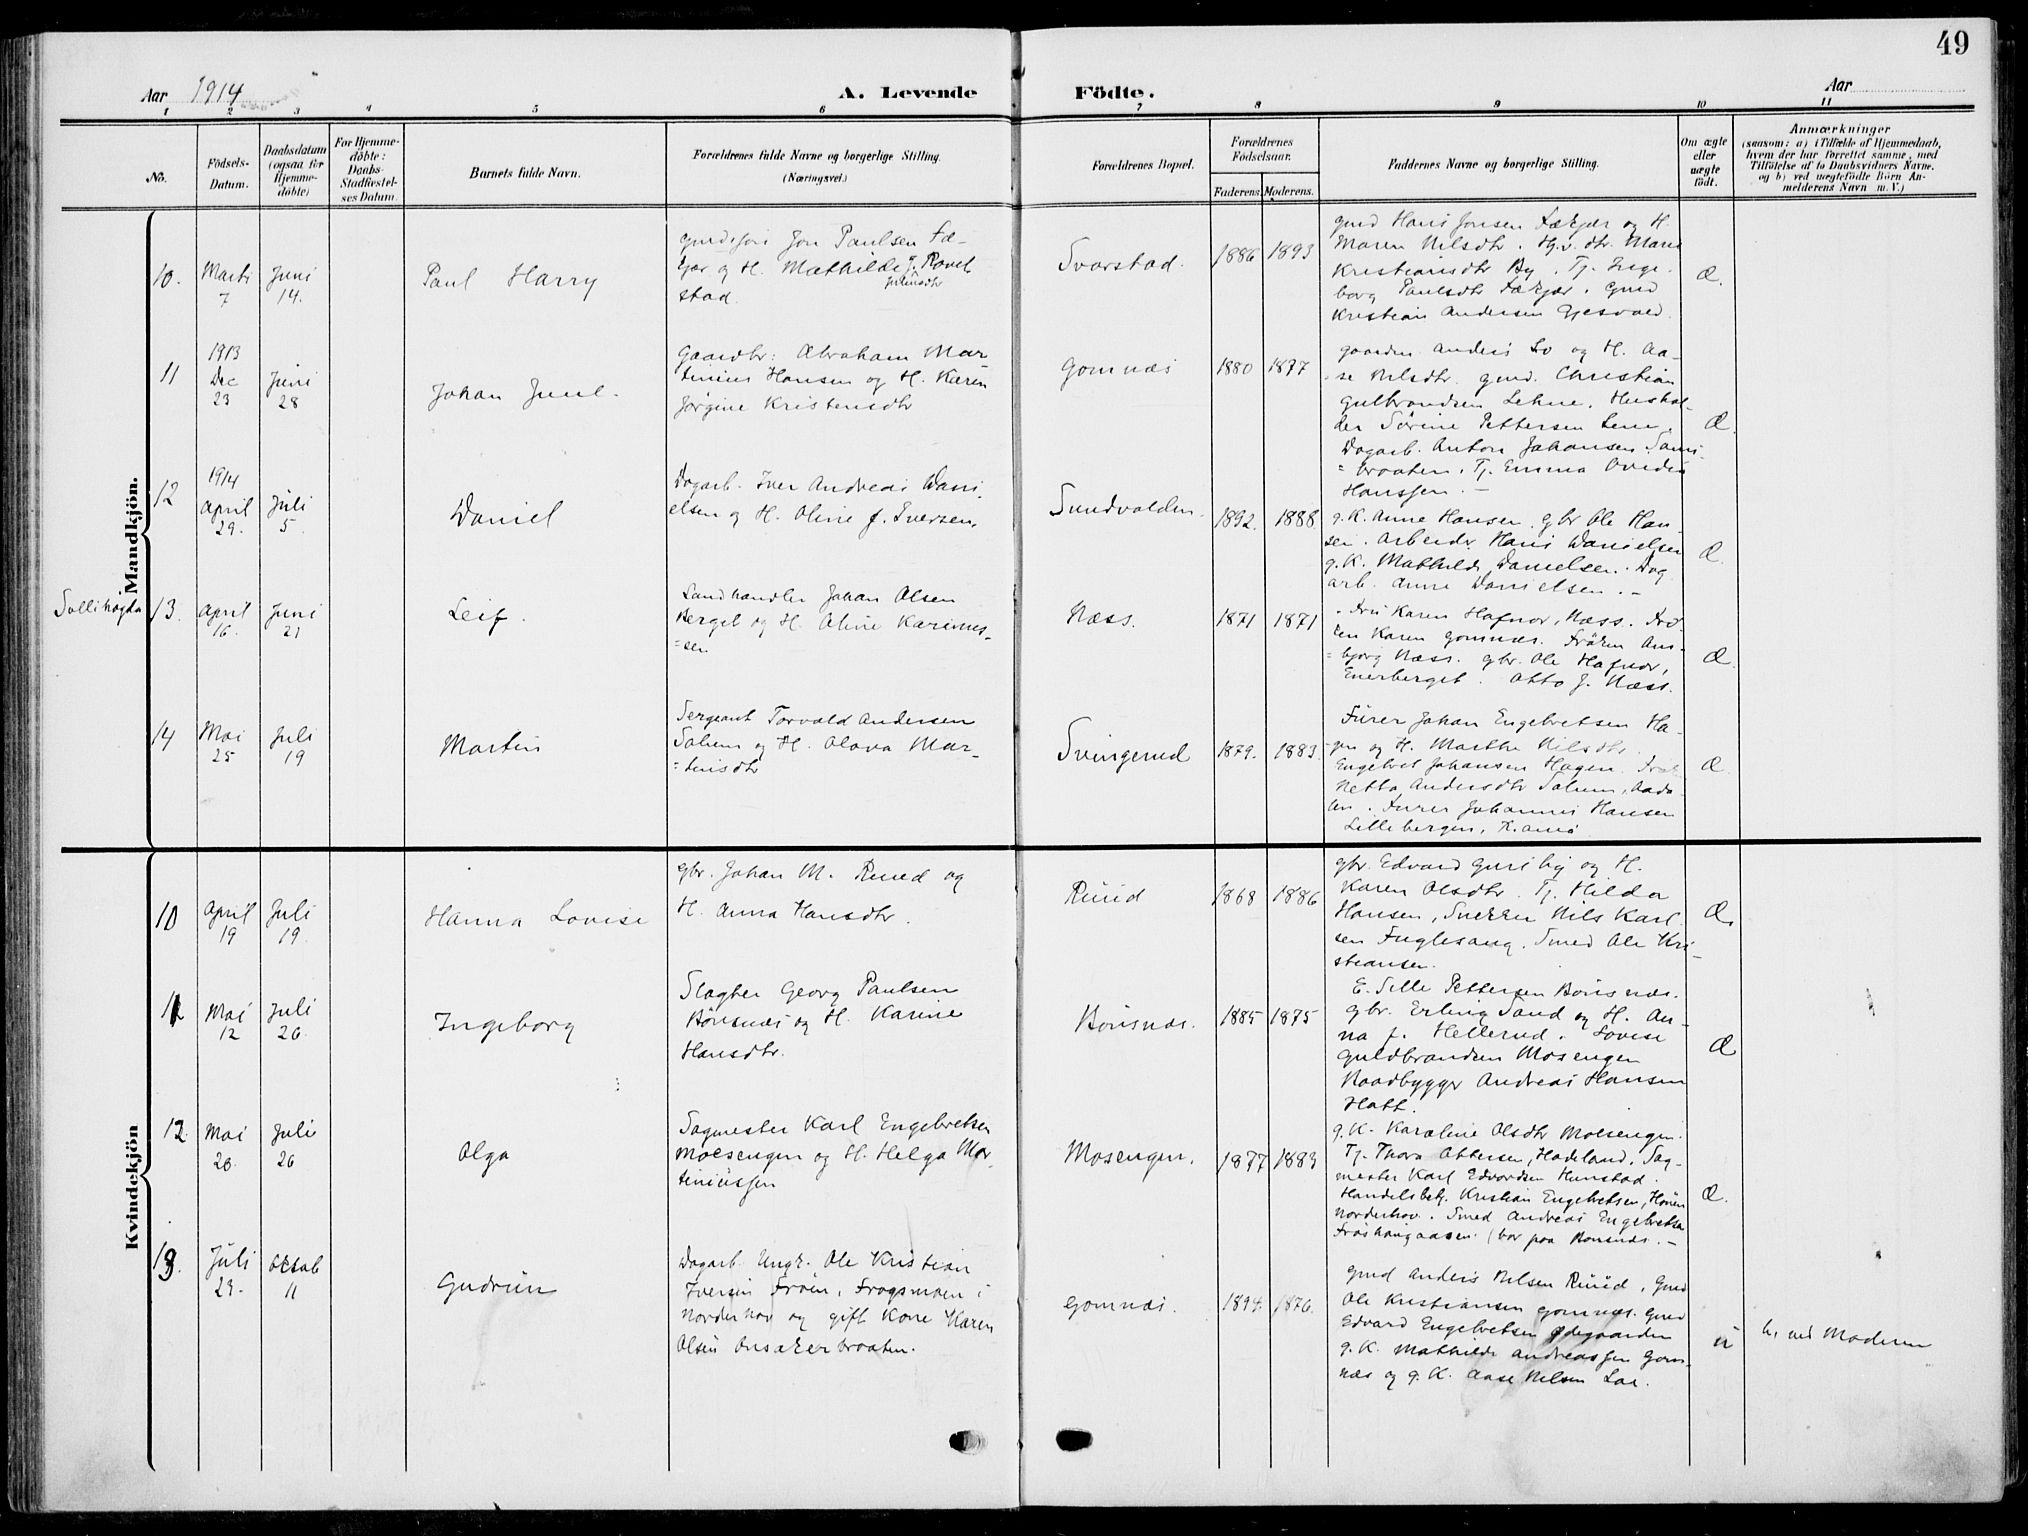 49
Aar 1914
A. Levende Födte.
Aar
1 2 3 4 5 6 7 8 9 10 11
No.
Födsels-Datum.
Daabsdatum (ogsaa for Hjemme-döbte)
For Hjemme-döbte: Daabs-Stadfæstelses Datum.
Barnets fulde Navn.
Forældrenes fulde Navne og borgerlige Stilling. (Næringsvei.)
Forældrenes Bopæl.
Forældrenes Födselsaar.
Faderens. Moderens.
Faddernes Navne og borgerlige Stilling.
Om ægte eller uægte födt.
Anmærkninger
(saasom: a) i Tilfælde af Hjemmedaab,
hvem der har forrettet samme, med
Tilföielse af to Daabsvidners Navne,
og b) ved uægtefödte Börn An-
melderens Navn m. V.)
Mandkjön.
10. Marts 7 Juni 14. Paul Harry
Jon Paulsen Fæ-
kjær og H. Mathilde
Julinsdtr
stad.
Svarstad. 1886 1893
gmd Hans Jonsen Fækjær og H.
Maren Nilsdtr. Gv. dtr. Marie
Kristiansdtr By. Tj. Inge-
borg Paulsdtr Fækjær. Gmd
Kristian Andersen Gjesvold.
Æ.
11 1913 Dec 23 Juni 28 Johan Juul.
Gaardbr: Abraham Mar
tinius Hansen og H. Karen
Jørgine Kristensdtr
Gomnæs 1880 1877
gaardm. Anders Lo og H. Aa-
se Nilsdtr. gmd. Christian
Gulbrandsen Lehne. Hushol-
der Sørine Pettersen Lene.
Dagarb. Anton Johansen
braaten. Tj. Emma
Hanssen. –
Æ.
12 1914 April 29. Juli 5 Daniel
Dagarb. Iver Andreas Dani
elsen og H. Oline f. Iversen.
Sundvolden 1892. 1888
g. K. Anne Hansen. gbr Ole Han
sen. Arbeider Hans Danielsen
g. K. Mathilde Danielsen. Dag
arb. Anne Danielsen. –
Æ.
Sollihøgda 13. April 16. Juni 21 Leif.
Landhandler Johan Olsen
Berget og H. Oline Karines-
=sen
Næss. 1871 1871
Fru Karen Hafnor, Næss. Frø-
ken Karen Gomnæs. Frøken
=bjørg Næss. gbr. Ole Hafnor,
Enerberget. Otto J. Næss.
Æ.
14 Mai 25 Juli 19 Martin
Sergeant Torvald Andersen
Solum og H. Olava Mar-
=tinsdtr
Svingerud 1879. 1883.
Furer Johan Engebretsen Ha-
gen og H. Marthe Nilsdtr.
Engebret Johansen Hagen.
Netta Andersdtr Solum, Aada-
len. Furer Johannes Hansen
Lillebergen, K.ania
Æ.
Kvindekjön
10 April 19 Juli 19. Hanna Lovise
gbr. Johan M. Ruud og
H. Anna Hansdtr.
Ruud 1868 1886
gbr. Edvard Gunsby og H.
Karen Olsdtr. Tj. Hilda
Hansen, Snekker Nils Karl
sen Fuglesang. Smed Ole Kri-
stiansen.
Æ.
11 Mai 12 Juli 26. Ingeborg
Slagter Georg Paulsen
Bönsnæs og H. Karine
Hansdtr.
Bönsnæs. 1885 1875
E. Sille Pettersen Bönsnæs.
gbr. Erling Sand og H. An-
na f. Hellerud. Lovise
Guldbrandsen Mosengen
Baadbygger Andreas Hansen
Hatt.
Æ
12. Mai 26. Juli 26 Olga
Sagmester Karl Engebretsen
Moesengen og H. Helga Mar
tiniussen
Mosengen. 1877 1883
g. K. Karoline Olsdtr Moesengen.
Tj. Thora Ottersen, Hadeland. Sag-
mester Karl Edvardsen Hunstad.
Handelsbetj. Kristian Engebretsen, Hønen
Norderhov. Smed Andreas Engebretsen
Frøshaugaasen. (bor paa Bönsnæs. –
Æ.
13. Juli 23. Oktob 11 Gudrun
Dagarb. Ungk. Ole Kristian
Iversen Frøen, Frogsmoen i
Norderhov og gift Kone Karen
Olsen Onsakerbraaten.
Gomnæs. 1894. 1876.
gmd Anders Nilsen Ruud, Gmd
Ole Kristiansen Gomnæs. Gmd
Edvard Engebretsen Ødegaarden
g. K. Mathilde Andreassen Gom-
næs og g. K. Aase Nilsen Loe.
u
h. ved Moderen